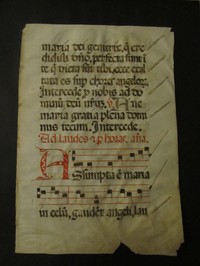 maria dei genitrix, q̄ cre
didisti dn̄o, perfecta sunt ī
te q̄ dicta sūt tibi, exal
tata es sup choros angelor̄.
Intercede p nobis ad do
minū deū nr̄m. Aue
maria gratia plena domi
nus tecum. Intercede.
Ad laudes & p horas, an̄a.
Assumpta ē maria
in celū, gaudēt angeli, lau